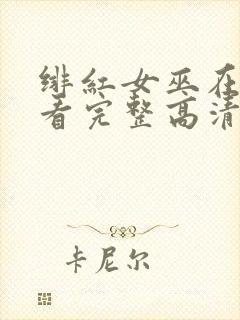 绯红女巫在
看完整高清
卡尼尔